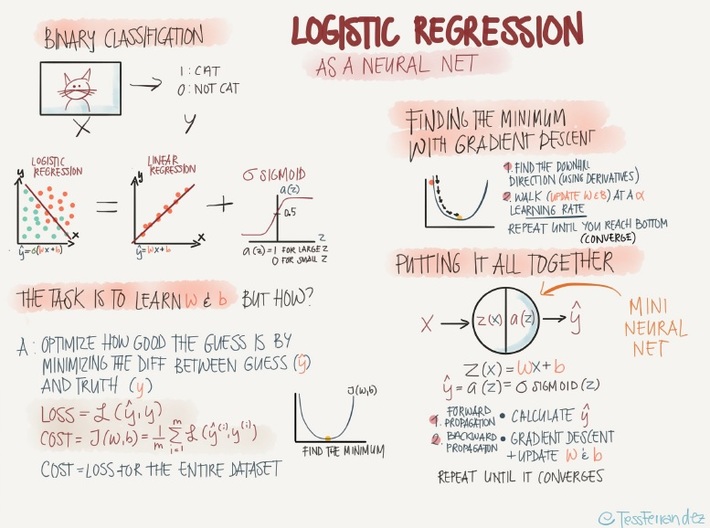 LOGISTIC REGRESSION
AS A NEURAL NET
BINARY CLASSIFICATION
1: CAT
0: NOT CAT
X
y
LOGISTIC
REGRESSION
y
x
ŷ=σ(wx+b)
=
LINEAR
REGRESSION
y
x
ŷ=wx+b
+
σ SIGMOID
a(z)
0.5
z
a(z)=1 FOR LARGE Z
0 FOR SMALL Z
THE TASK IS TO LEARN w & b BUT HOW?
A: OPTIMIZE HOW GOOD THE GUESS IS BY
MINIMIZING THE DIFF BETWEEN GUESS (ŷ)
AND TRUTH (y)
LOSS = ℒ(ŷ,y)
COST = J(w,b) = 1/m Σ_{i=1}^{m} ℒ(ŷ⁽ⁱ⁾,y⁽ⁱ⁾)
COST = LOSS FOR THE ENTIRE DATASET
J(w,b)
FIND THE MINIMUM
FINDING THE MINIMUM
WITH GRADIENT DESCENT
1. FIND THE DOWNHILL
DIRECTION (USING DERIVATIVES)
2. WALK (UPDATE W & B) AT A α
LEARNING RATE
REPEAT UNTIL YOU REACH BOTTOM
(CONVERGE)
PUTTING IT ALL TOGETHER
X
z(x)
a(z)
ŷ
MINI
NEURAL
NET
Z(X) = WX + b
ŷ = a(z) = σ SIGMOID(Z)
1. FORWARD
PROPAGATION
• CALCULATE ŷ
2. BACKWARD
PROPAGATION
• GRADIENT DESCENT
+ UPDATE w & b
REPEAT UNTIL IT CONVERGES
@TessFerrandez